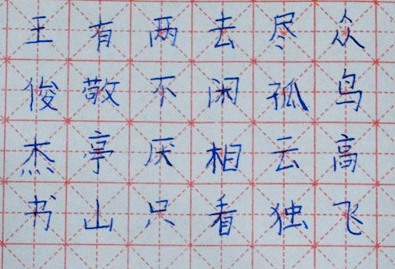 众鸟高飞
尽孤云独
去闲相看
两不厌只
有敬亭山
王俊杰书